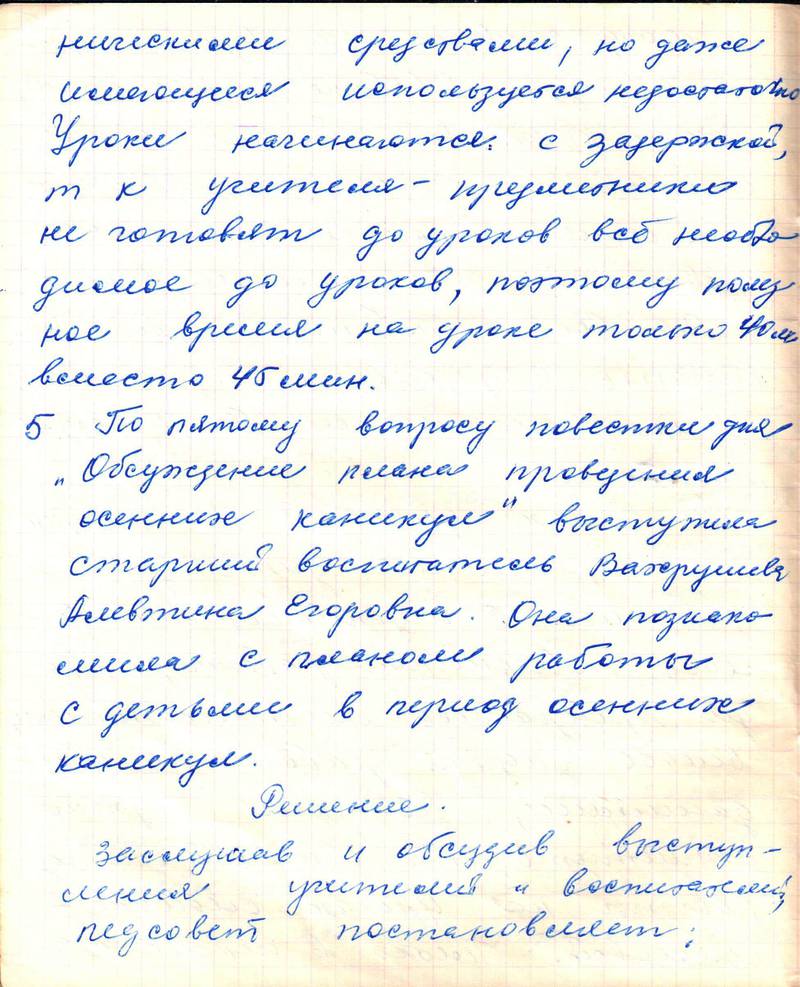 ническими средствами, но даже
имеющиеся используется недостаточно
Уроки начинаются с задержкой,
т к учителя - предметники
не готовят до уроков всё необхо
димое до уроков, поэтому полез
ное время на уроке только 40 м
вместо 45 мин.
5 По пятому вопросу повестки дня
„Обсуждение плана проведения
осенних каникул" выступила
старший воспитатель Вахрушева
Алевтина Егоровна. Она познако
мила с планом работы
с детьми в период осенних
каникул.
Решение.
Заслушав и обсудив выступ-
ления учителей и воспитателей,
педсовет постановляет: